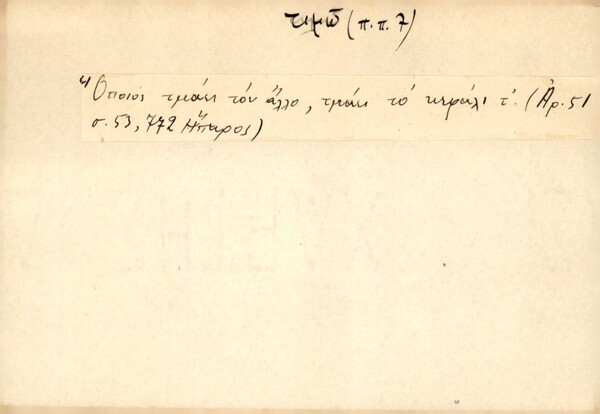 τιμῶ (π.π. 7)
Ὅποιος τμάει τόν ἄλλο, τμάει τό κεφάλι τ'. (Ἀρ. 51
σ. 53, 772 Ἤπειρος)